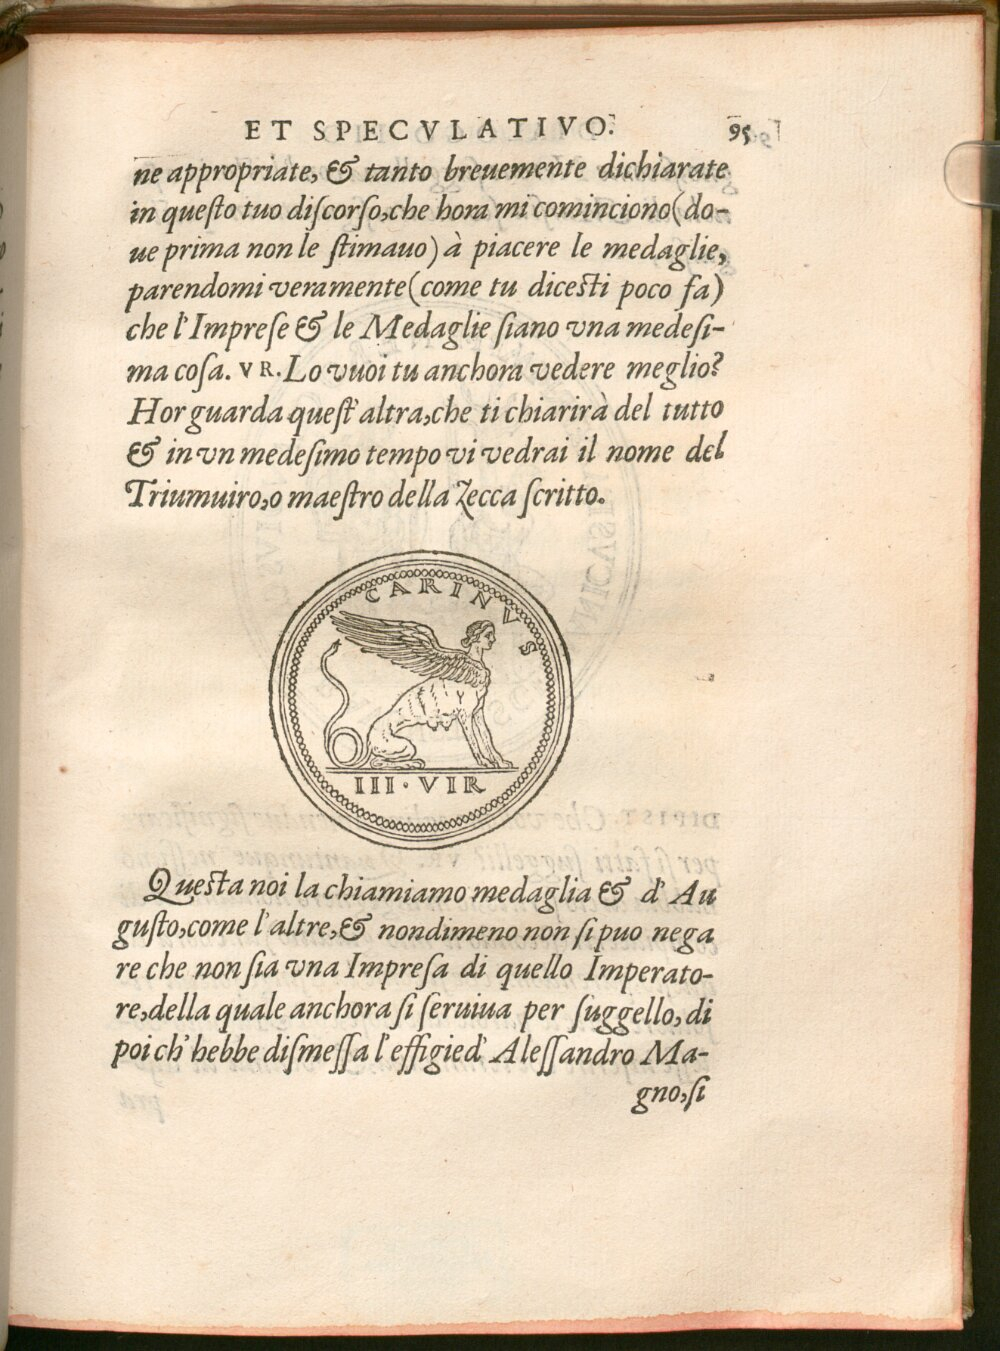 ET SPECVLATIVO.
95
ne appropriate, & tanto breuemente dichiarate
in queſto tuo diſcorſo, che hora mi cominciono (do-
ue prima non le ſtimauo) à piacere le medaglie,
parendomi veramente (come tu diceſti poco fa)
che l'Impreſe & le Medaglie ſiano vna medeſi-
ma coſa. VR. Lo vuoi tu anchora vedere meglio?
Hor guarda queſt' altra, che ti chiarirà del tutto
& in vn medeſimo tempo vi vedrai il nome del
Triumuiro, o maeſtro della Zecca ſcritto.
CARINVS
III · VIR
Queſta noi la chiamiamo medaglia & d' Au
guſto, come l'altre, & nondimeno non ſi puo nega
re che non ſia vna Impreſa di quello Imperato-
re, della quale anchora ſi ſeruiua per ſuggello, di
poi ch' hebbe diſmeſſa l'effigie d' Aleſſandro Ma-
gno, ſi